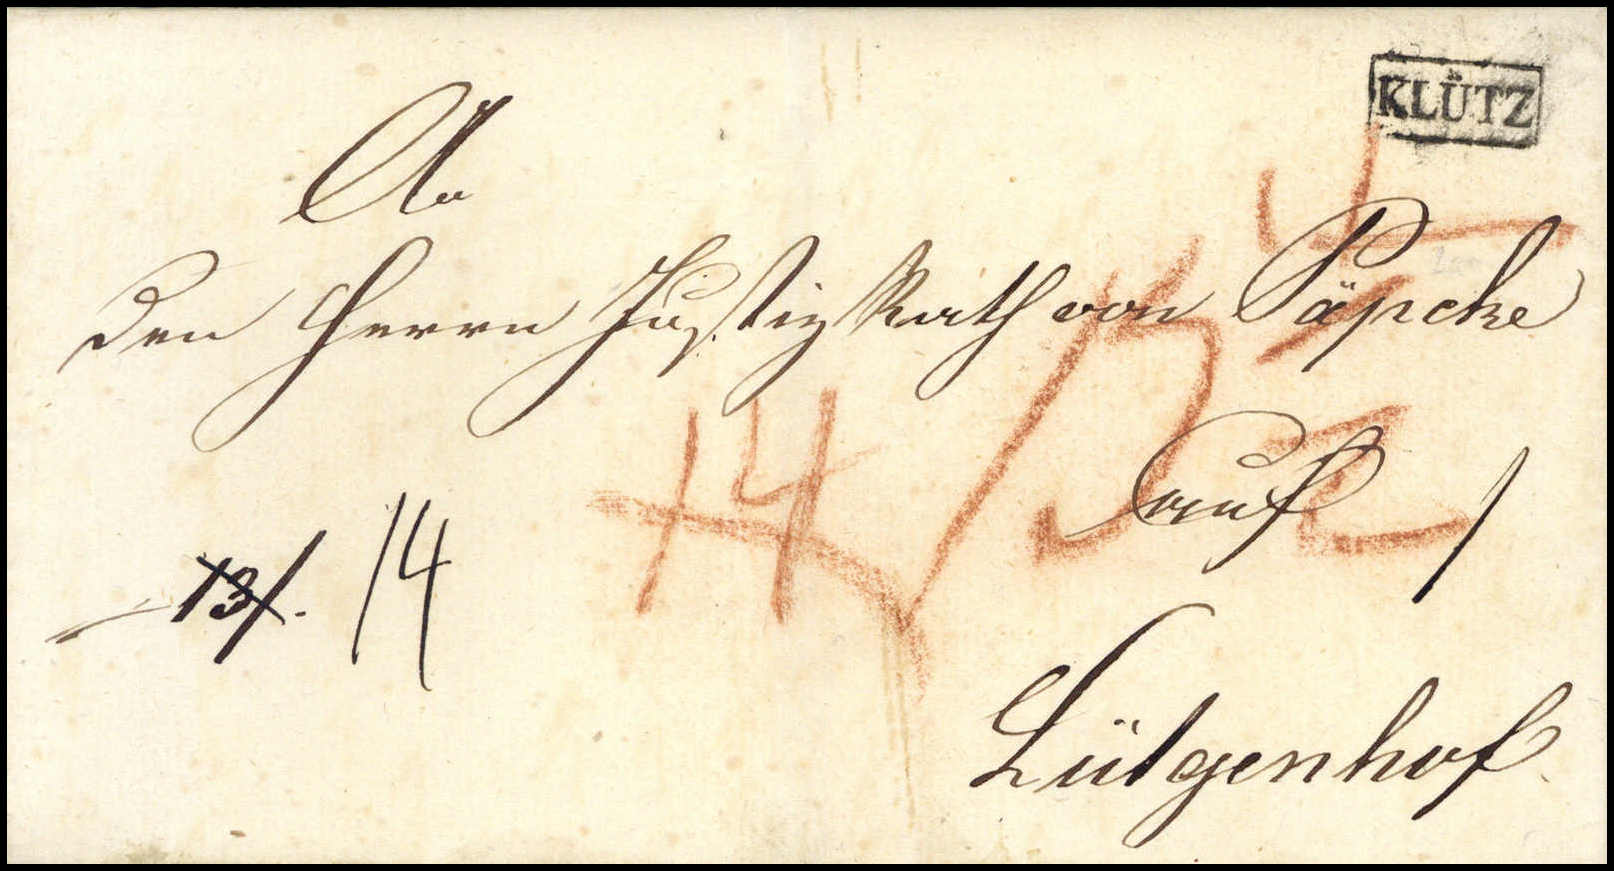 KLÜTZ
An
den Herrn Justiz Rath von Päpcke
auf
Lütgenhof.
13/. 14
14